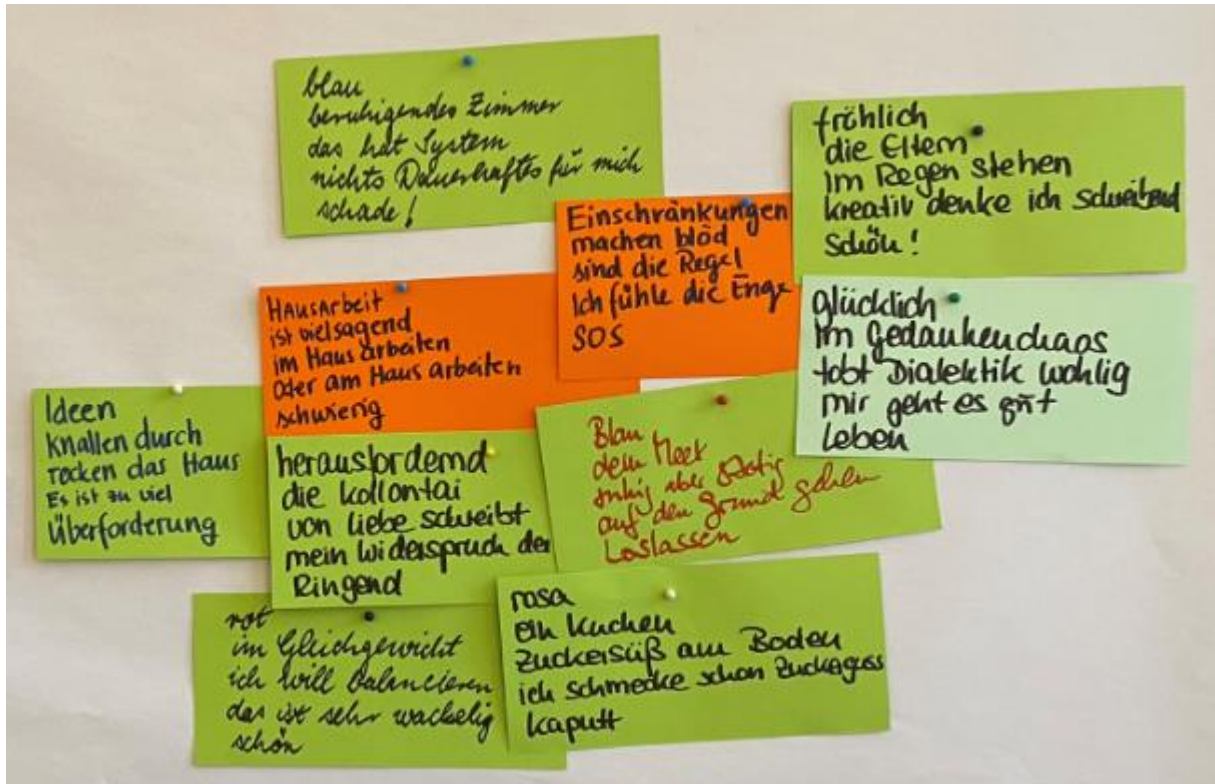 blau
beruhigendes Zimmer
das hat System
nichts Dauerhaftes für mich
schade!
fröhlich
die Eltern
Im Regen stehen
kreativ denke ich schreibend
Schön!
Einschränkungen
machen blöd
sind die Regel
Ich fühle die Enge
SOS
Hausarbeit
ist vielsagend
im Haus arbeiten
oder am Haus arbeiten
schwierig
glücklich
Im Gedankenchaos
tobt Dialektik wohlig
mir geht es gut
Leben
Ideen
knallen durch
rocken das Haus
Es ist zu viel
Überforderung
herausfordernd
die Kollontai
von Liebe schreibt
mein Widerspruch der
Ringend
Blau
dem Meer
ruhig aber stetig
auf den Grund gehen
Loslassen
rot
im Gleichgewicht
ich will balancieren
das ist sehr wackelig
schön
rosa
ein Kuchen
Zuckersüß am Boden
ich schmecke schon Zuckerguss
kaputt